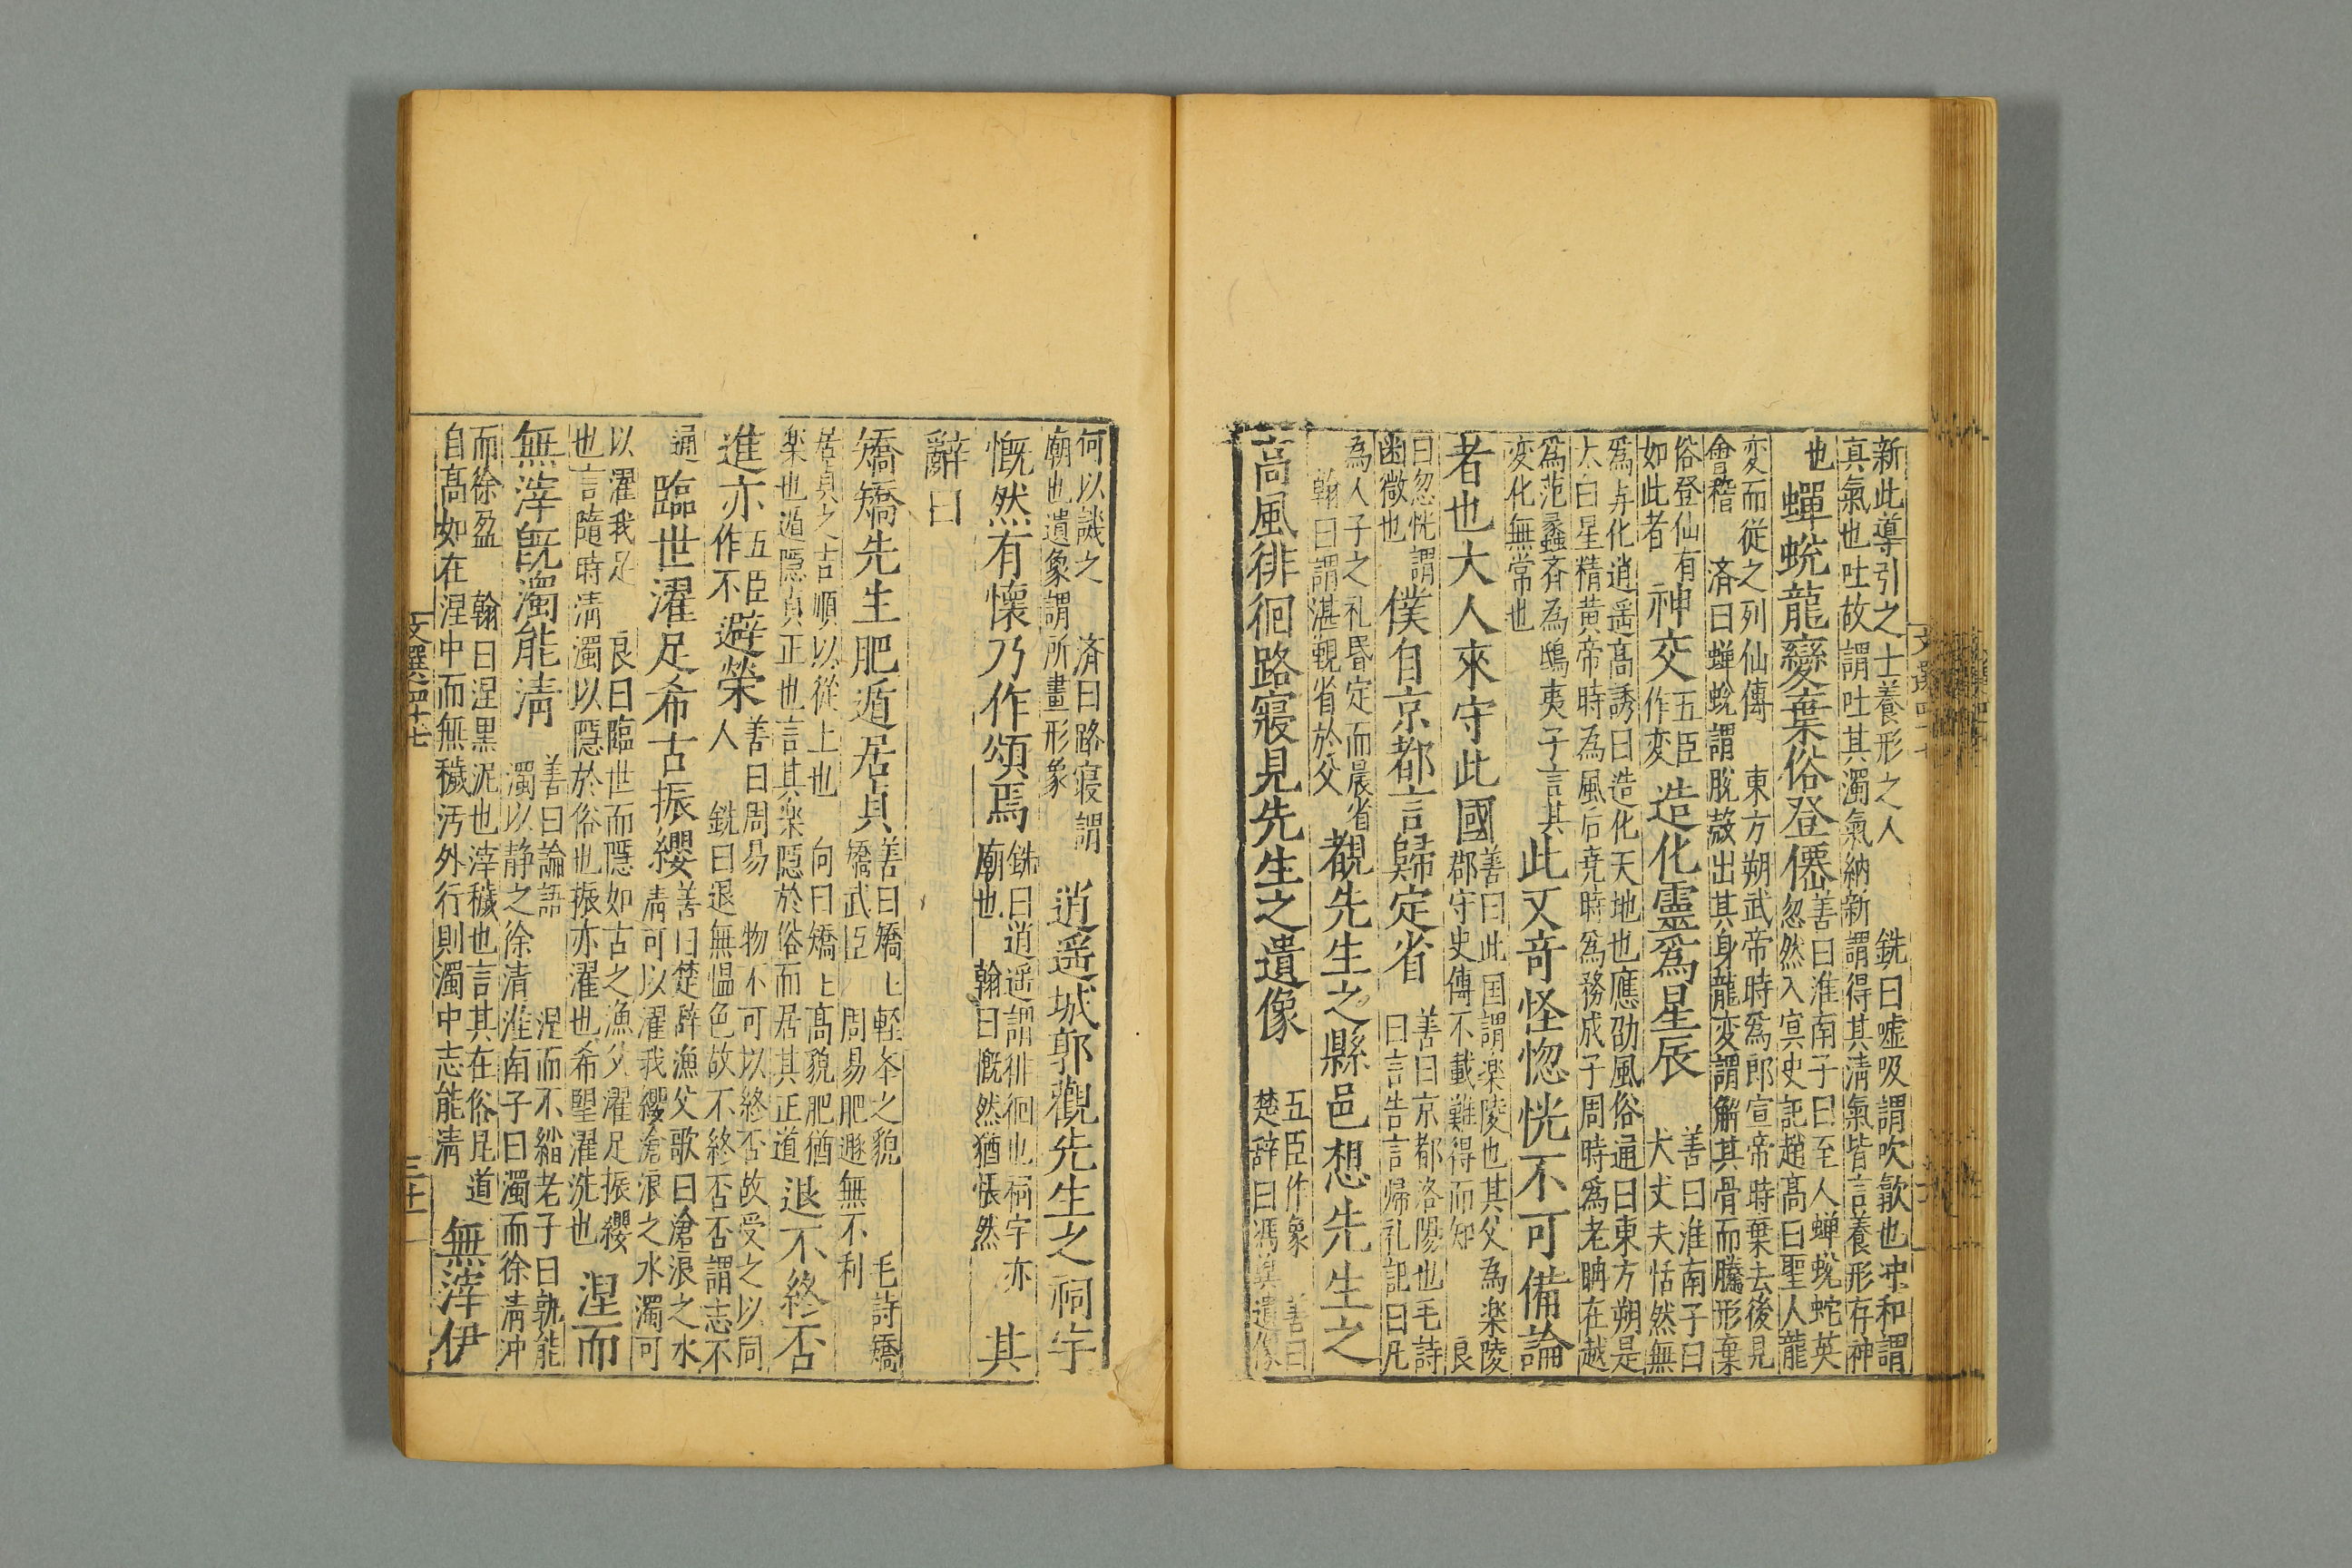 新此導引之士養形之人 銑曰嘘吸謂吹歙也冲和謂
真氣也吐故謂吐其濁氣納新謂得其清氣皆言養形存神
也 蟬蛻龍變棄俗登僊 善曰淮南子曰至人蟬蛻蛇英
忽然入冥史記趙高曰聖人龍
変而従之列仙傳 東方朔武帝時爲郎宣帝時棄去後見
會稽 済曰蝉蛻謂脫殼出其身龍変謂解其骨而騰形棄
俗登仙有
如此者 神交 五臣
作変 造化靈爲星辰 善曰淮南子曰
大丈夫恬然無
爲与化逍遥高誘曰造化天地也應劭風俗通曰東方朔是
太白星精黄帝時為風后尭時爲務成子周時爲老聃在越
爲范蠡斉為鴟夷子言其
変化無常也 此又奇怪惚恍不可備論
者也大人來守此國 善曰此国謂楽陵也其父為楽陵
郡守史傳不載難得而知 良
曰忽恍謂
幽微也 僕自京都言歸定省 善曰京都洛陽也毛詩
曰言告言帰礼記曰凡
為人子之礼昏定而晨省
翰曰謂湛覲省於父 覩先生之縣邑想先生之
高風徘徊路寢見先生之遺像 五臣作象 善曰
楚辞曰馮異遺像
何以誠之 済曰路寝謂
廟也遺象謂所畫形象 逍遥城郭觀先生之祠宇
銑曰逍遥謂徘徊也祠宇亦
廟也 翰曰慨然猶悵然 其
慨然有懷乃作頌焉
辭曰
矯矯先生肥遁居貞 善曰矯上軽夲之貌 毛詩矯
矯武臣 周易肥遯無不利
居貞之吉順以従上也 向曰矯上髙貌肥猶
楽也遁隱貞正也言其楽隠於俗而居其正道 退不終否
進亦 五臣
作不 避榮 善曰周易 物不可以終否故受之以同
人 銑曰退無愠色故不終否否謂志不
通 臨世濯足希古振纓 善曰楚辞漁父歌曰滄浪之水
清可以濯我纓滄浪之水濁可
以濯我足 良曰臨世而隠如古之漁父濯足振纓
也言隨時清濁以隠於俗也振亦濯也希望濯洗也 涅而
無滓既濁能清 善曰論語 涅而不緇老子曰孰能
濁以静之徐清淮南子曰濁而徐清冲
而徐盈 翰曰涅黒泥也滓穢也言其在俗昆道
自髙如在涅中而無穢汚外行則濁中志能清 無滓伊
文選四十七
三十一